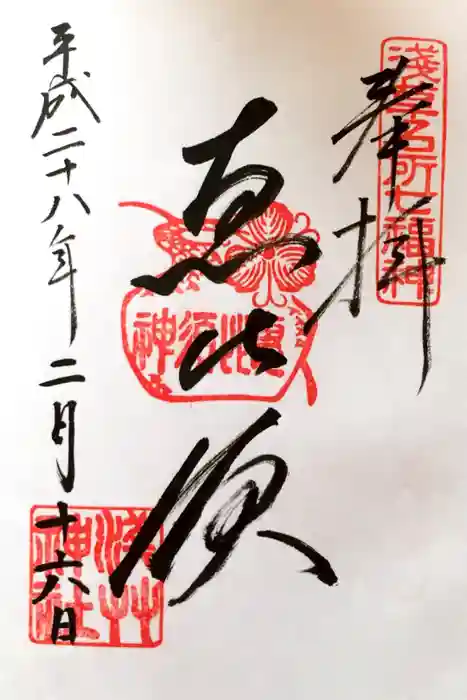 奉拝
淺草名所七福神
恵比須
惠比須神
平成二十八年二月十六日
淺艸神社